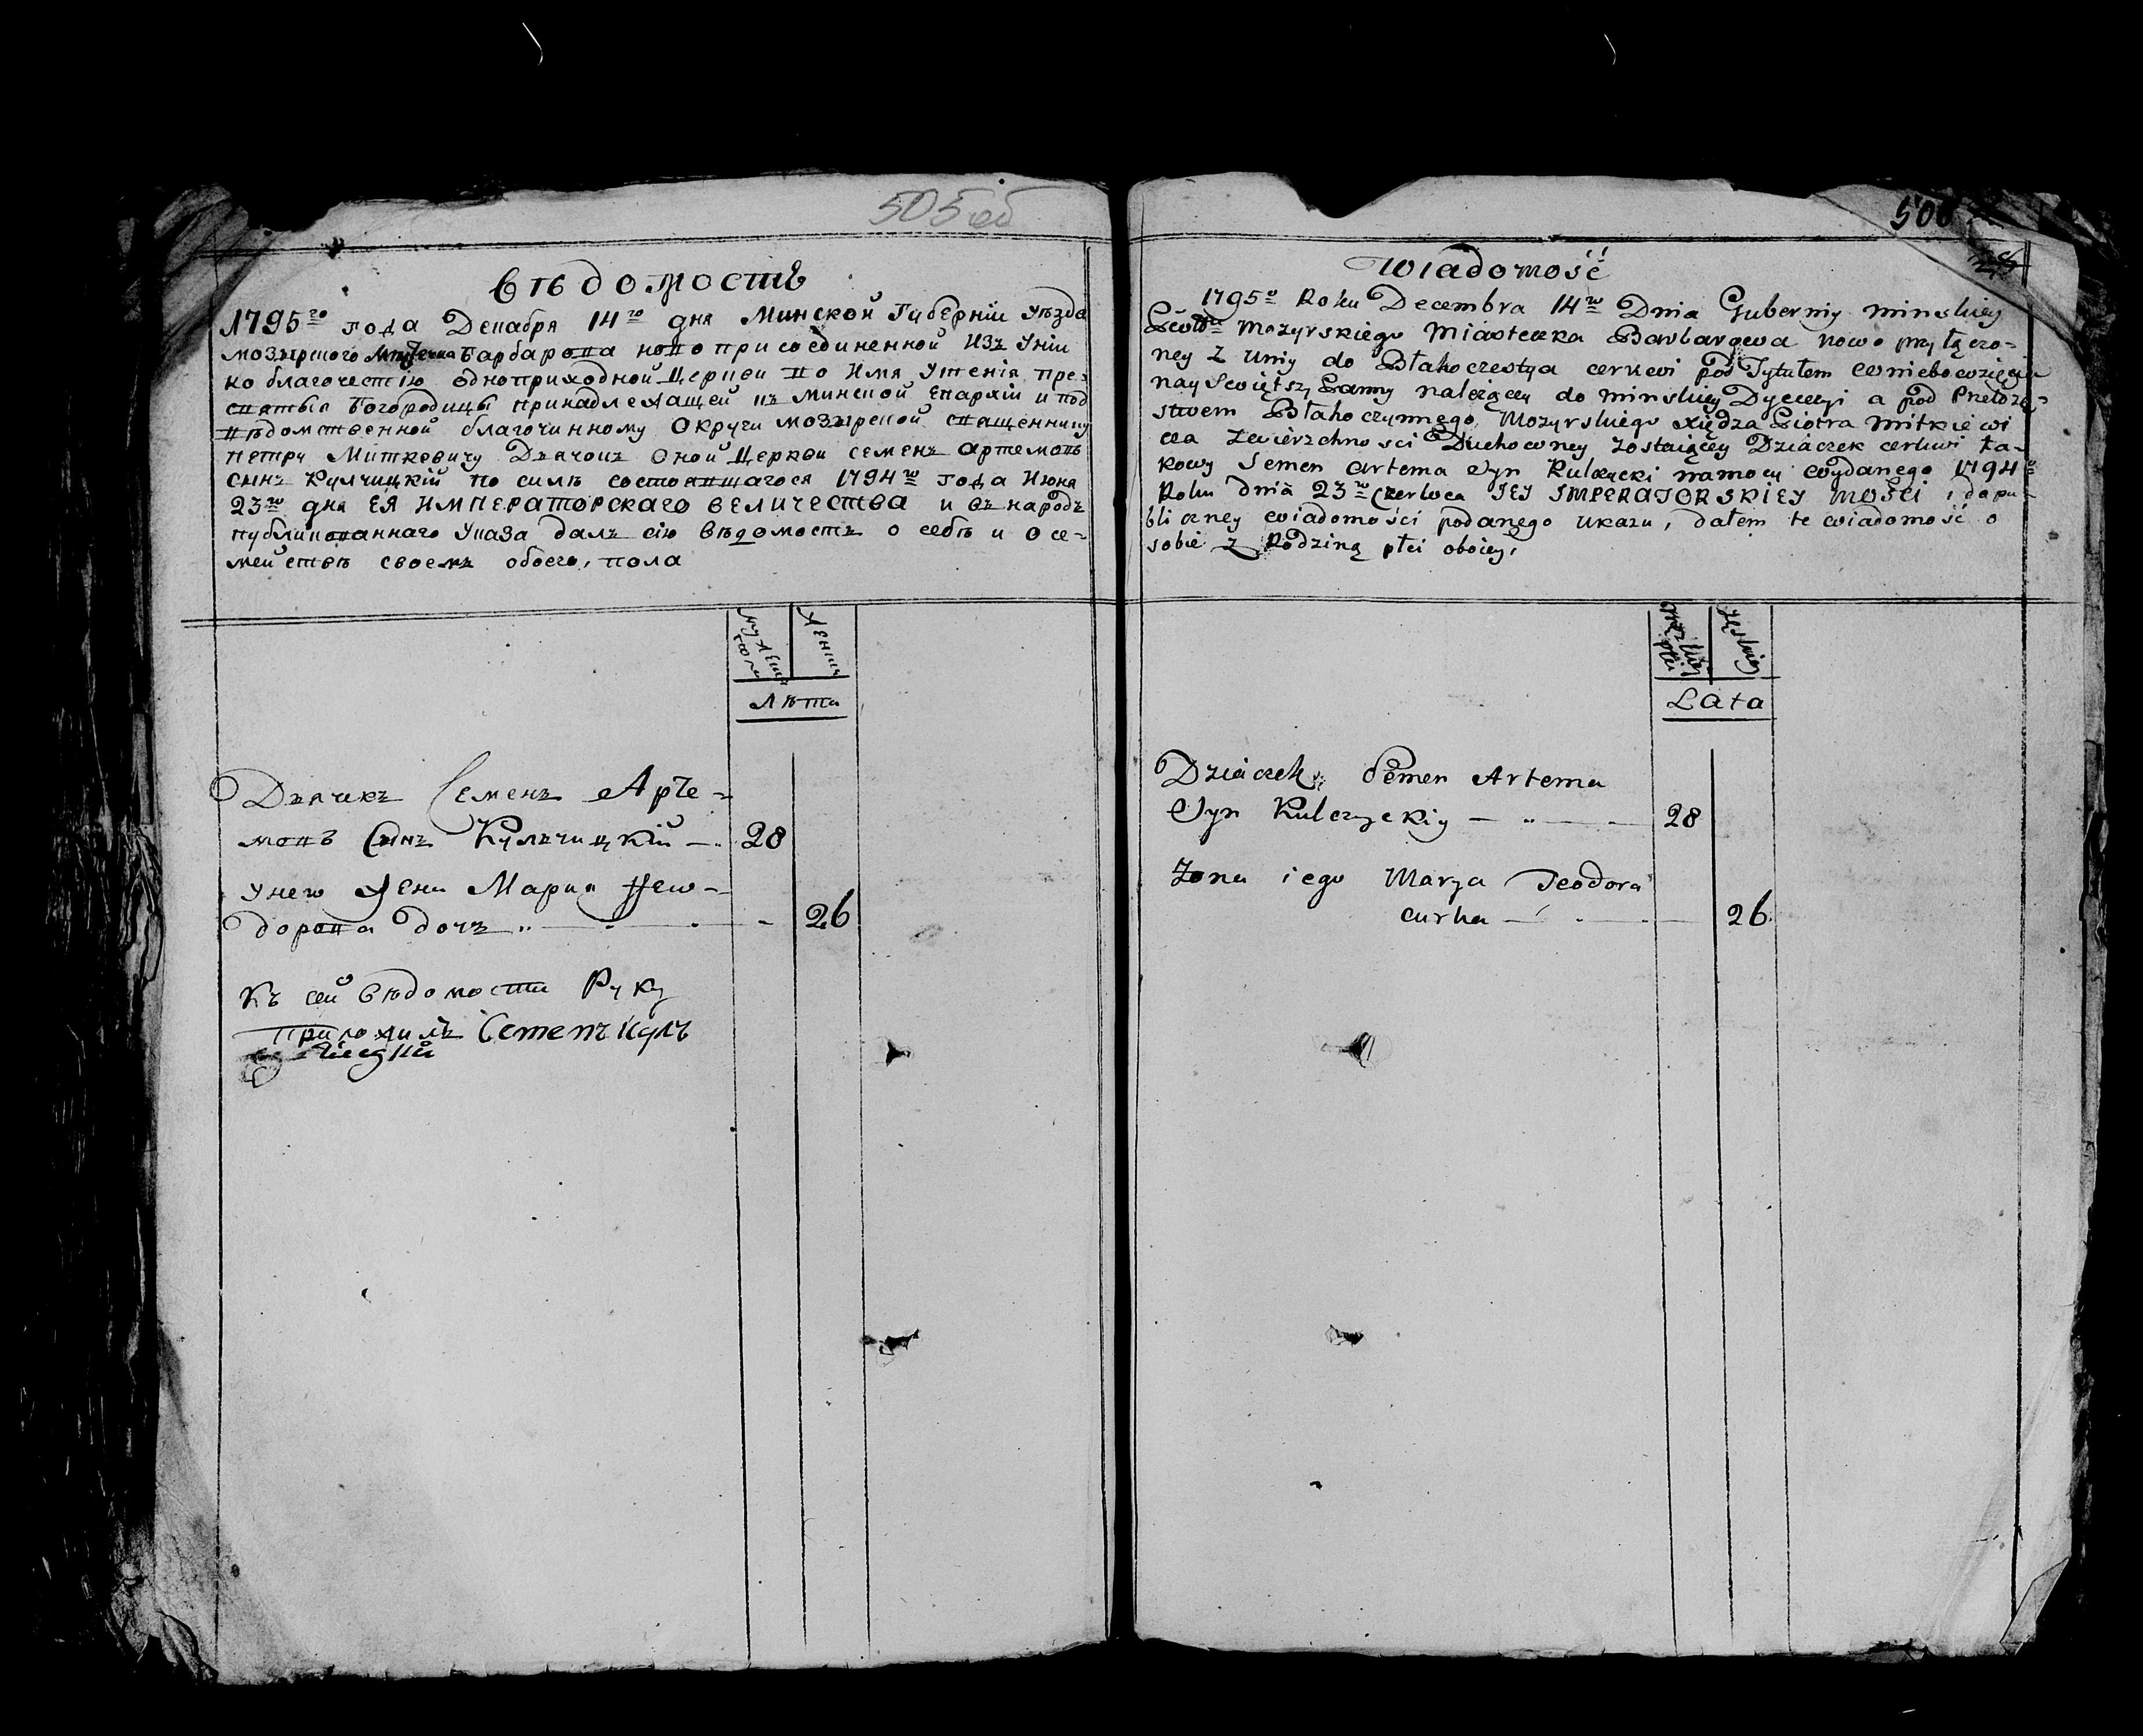 505 об
Вѣдомость
1795го года Декабря 14го дня Минской Губерніи Уѣзда
мозырского Барбарова ново присоединенной Изъ Уніи
ко благочестію одноприходной Церкви во Имя Успенія Пре-
святыя Богородицы принадлежащей къ минской Епархіи и под
вѣдомственной благочинному Округи мозырской священнику
петру Миткевичу Дьячокъ Оной Церкви семенъ Артемовъ
сынъ Кулчицкій по силѣ состоявшагося 1794го года Июня
23го дня ЕЯ ИМПЕРАТОРСКАГО ВЕЛИЧЕСТВА и въ народъ
публикованнаго Указа далъ сію вѣдомость о себѣ и о се-
мействѣ своемъ обоего, пола
мужеска женска
Лѣта
Дьячекъ Семенъ Арте-
мовъ Сынъ Кульчицкій — 28
унего Жена Мария Ѳео-
дорова дочь — 26
Къ сей вѣдомости Руку
приложилъ Семенъ Кулъ
чицкий
Wiadomość
1795o Roku Decembra 14go Dnia Guberniy minskiey
Powiatu Mozyrskiego Miasteczka Barbarowa nowo przyłączo-
ney z Uniy do Błahoczestya cerkwi pod Tytułem wniebowzięcia
nayświętszy Panny należącey do minskiey Dyecezyi a pod Prewodze-
stwem Błahoczynnego Mozyrskiego Xiędza Piotra Mitkiewi
cza zwierzchności Duchowney zostaiącey Dziaczek cerkwi ta-
kowy Semen Artema Syn Kulczycki namocy wydanego 1794o
Roku dnia 23go Czerwca JEY IMPERATORSKIEY MOŚCI i dopu-
bliczney wiadomości podanego ukazu, dałem te wiadomość o
sobie z Rodziną płci oboiey,
Lata
Dziaczek Semen Artema
Syn Kulczyckiy — 28
Żona iego Marya Teodora
curka — 26